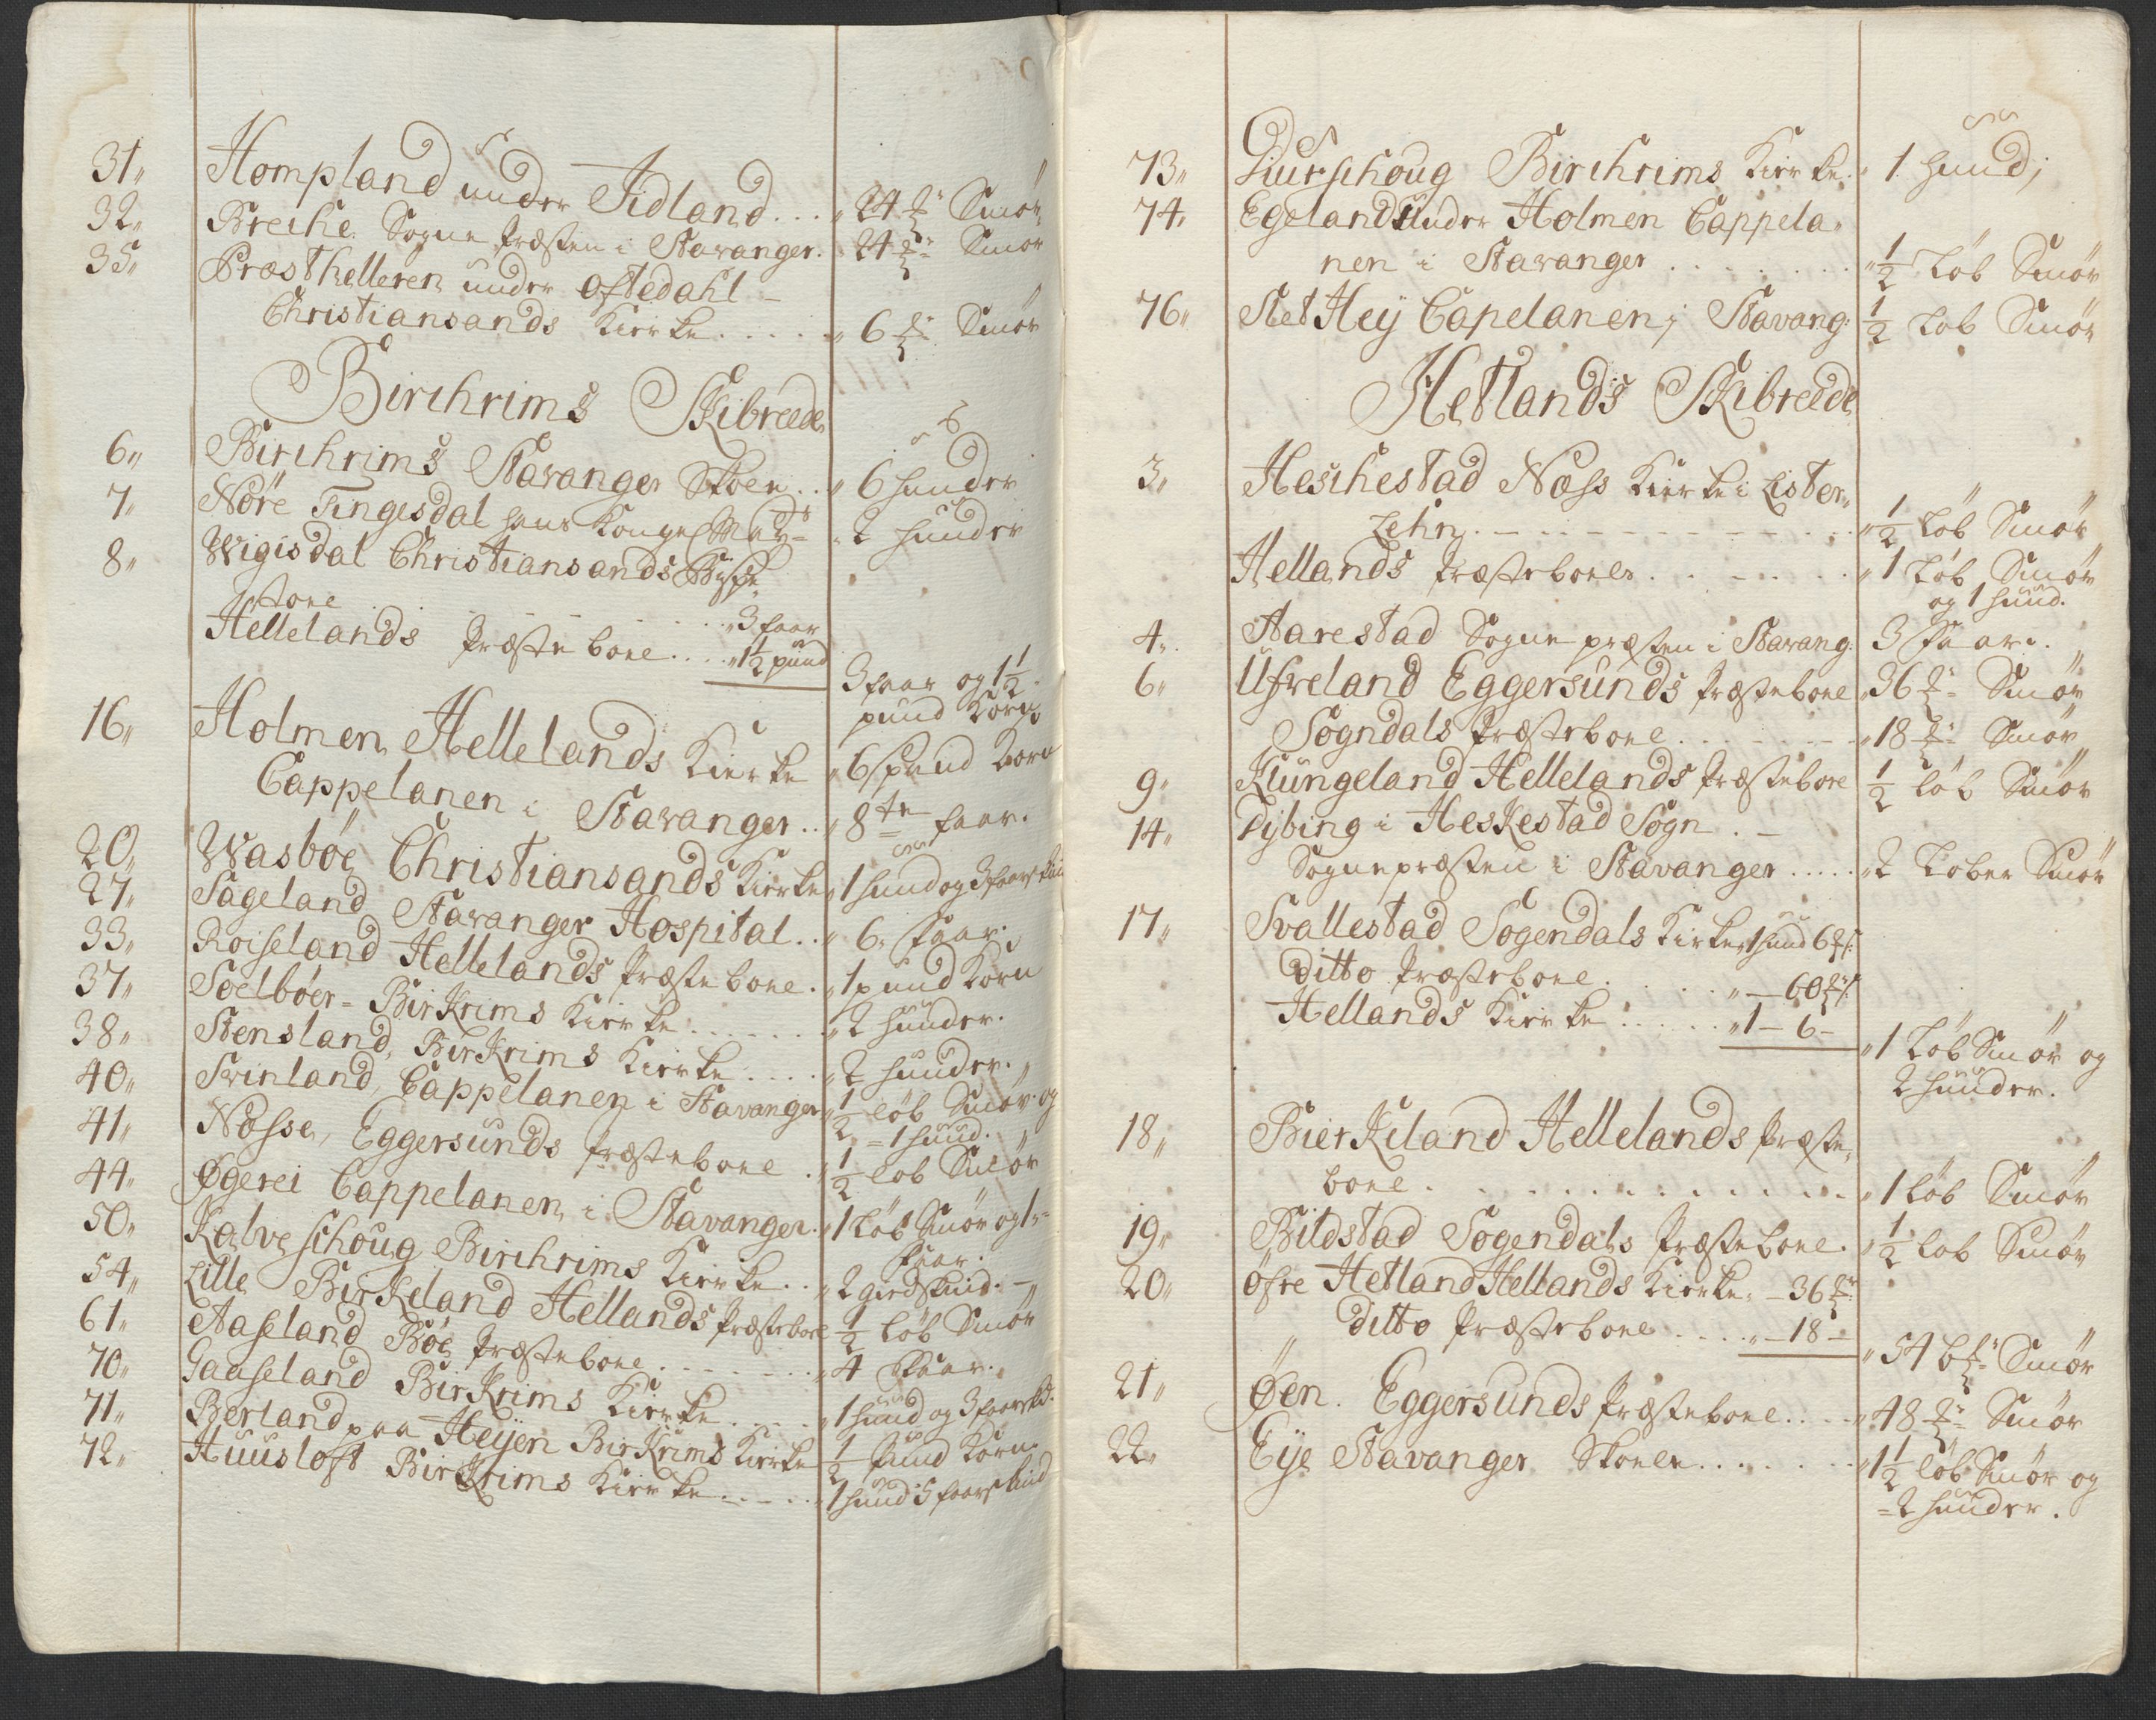 31„ Hompland under Jidland... „24 ℔r Smør
32„ Breche Sogne Præsten i Stavanger. 24 ℔r Smør
35„ Præsthelleren under Oftedahl -
Christiansands Kierke..... „6 ℔r Smør
Birchrims Skibreede
6„ Birchrims Stavanger Skoen.. „6 huuder
7„ Nöre Tingesdal hans Konge May- „2 huuder
8„ Wigisdal Christiansands Bispe
stoel ........ „3 faar
Hellelands Præste boel.... „1½ pund
3 faar og 1½
pund Korn
16„ Holmen Hellelands Kierke „6 Spund Korn
Cappelanen i Stavanger.. „8te faar.
20„ Wasböe Christiansands Kierke „1 huud og 3 faarskin
27„ Sageland Stavanger Hospital.. „6 faar.
33„ Roiseland Hellelands Præsteboel. „1 pund Korn
37„ Soelböer - Birkrims Kierke...... „2 huuder.
38„ Stensland, Birkrims Kierke.... „2 huuder.
40„ Svinland, Cappelanen i Stavanger „½ löb Smör og
= 1 huud.
41„ Nösse, Eggersunds Præsteboel. „½ löb Smör
44„ Øgerei Cappelanen i Stavanger. „1 Löb Smör og 1-
faar.
50„ Kalveschoug Birchrims Kierke.. „2 giedskind. -
54„ Lille Birkeland Hellands Præsteboel ½ löb Smör
61„ Aaseland Böe Præsteboel...... „4 Faar.
70„ Gaaseland Birkrims Kierke.... „1 huud og 3 faarskd.
71„ Berland paa Heijen Birkrims Kierke ½ Pund Korn
72„ Huusloft Birkrims Kierke.... „1 huud 5 faarskind
73„ Giurschoug Birchrims Kierke. „1 huud;
74„ Egelands under Holmen Cappela„
nen i Stavanger ....... „½ Löb Smör
76„ Slet Heij Capelanen i Stavang: ½ Löb Smör
Hetlands Skibreede
3„ Heschestad Næss Kierke i Lister„
Lehn ......... „½ Löb Smör
Hellands Præsteboel...... „1 Löb Smör
og 1 huud.
4„ Aarestad Sogne præsten i Stavang: 3 Faar.
6„ Ufveland Eggersunds Præsteboel „36 ℔r Smör
Sogndals Præsteboel...... „18 ℔r Smör
9„ Klungeland Hellelands Præsteboel ½ löb Smör
14„ Dybing i Heskestad Sogn . -
Sognepræsten i Stavanger..... „2 Löber Smör
17„ Svallestad Sogendals Kirke „1 huud 6 ℔r
Ditto Præsteboel...... „— 60 ℔r
Hellands Kierke...... „1 — 6 —
„1 Löb Smör og
2 huuder.
18„ Bierkeland Hellelands Præste„
boel ............ „1 löb Smör
19„ Bildstad Sogendals Præsteboel. „½ löb Smör
20„ Öfre Hetland Hellands Kierke. — 36 ℔r
Ditto Præsteboel.... „— 18 —
„54 ℔r Smör
21„ Øen. Eggersunds Præsteboel.... „48 ℔r Smör
22„ Eije Stavanger Skoele....... „1½ löb Smör og
= 2 huuder.